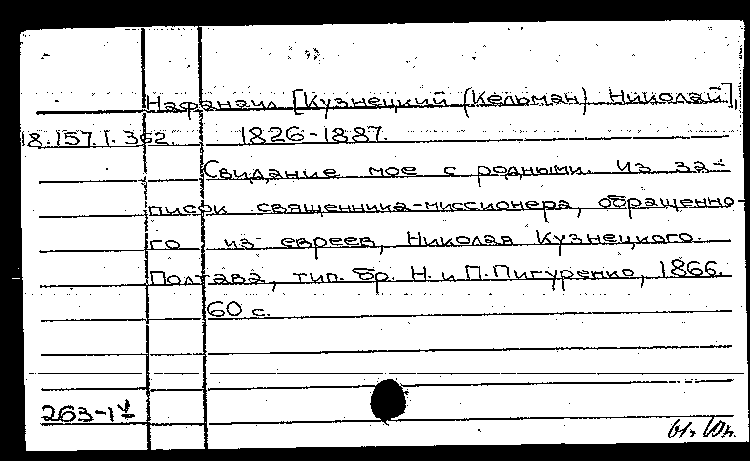 Нафанаил [Кузнецкий (Кельман) Николай],
18.157.1.362. 1826-1887.
Свидание мое с родными. Из за-
писок священника-миссионера, обращенно-
го из евреев, Николая Кузнецкого.
Полтава, тип. бр. Н. и П. Пигуренко, 1866.
60 с.
263-1